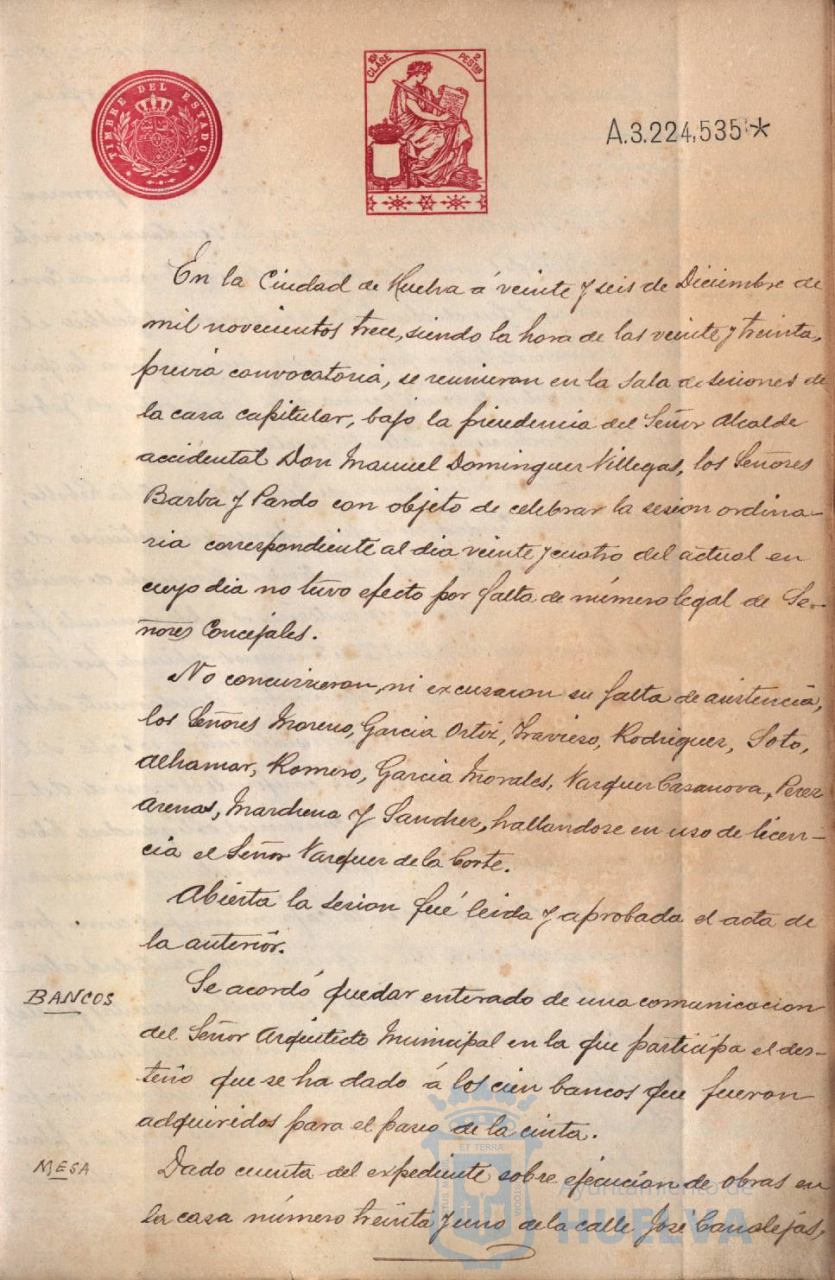 TIMBRE DEL ESTADO
10ª CLASE
2 PESTAS
A.3.224,535*
En la Ciudad de Huelva á veinte y seis de Diciembre de
mil novecientos trece, siendo la hora de las veinte y treinta,
previa convocatoria, se reunieron en la sala de sesiones de
la casa capitular, bajo la presidencia del Señor Alcalde
accidental Don Manuel Dominguez Villegas, los Señores
Barba y Pardo con objeto de celebrar la sesion ordina-
ria correspondiente al dia veinte y cuatro del actual en
cuyo dia no tuvo efecto por falta de número legal de Se-
ñores Concejales.
No concurrieron, ni excusaron su falta de asistencia,
los Señores Moreno, Garcia Ortiz, Travieso, Rodriguez, Soto,
Alhamar, Romero, Garcia Morales, Vazquez Casanova, Perez
Arenas, Marchena y Sanchez, hallandose en uso de licen-
cia el Señor Vazquez de la Corte.
Abierta la sesion fué leida y aprobada el acta de
la anterior.
BANCOS
Se acordó quedar enterado de una comunicacion
del Señor Arquitecto Municipal en la que participa el des-
tino que se ha dado á los cien bancos que fueron
adquiridos para el paseo de la cinta.
MESA
Dado cuenta del expediente sobre ejecucion de obras en
la casa número treinta y uno de la calle José Canalejas,
ET TERRÆ
Ayuntamiento de
HUELVA